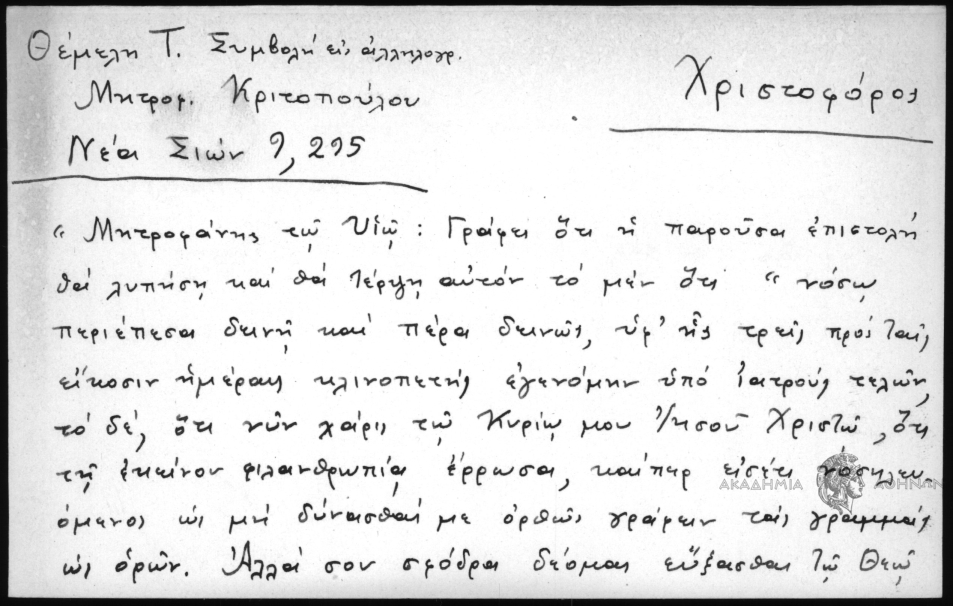 Θέμελη Τ. Συμβολή εις αλληλογρ.
Μητροφ. Κριτοπούλου
Χριστοφόρος
Νέα Σιών 9, 295
« Μητροφάνης τῷ Υἱῷ : Γράφει ὅτι ἡ παροῦσα ἐπιστολή
θά λυπήσῃ καί θά τέρψῃ αὐτόν τό μέν ὅτι " νόσῳ
περιέπεσα δεινῇ καί πέρα δεινῶς, ὑφ' ἧς τρεῖς πρός ταῖς
εἴκοσιν ἡμέραις κλινοπετής ἐγενόμην ὑπό ἰατρούς τελῶν,
τό δέ, ὅτι νῦν χάρις τῷ Κυρίῳ μου Ἰησοῦ Χριστῷ, ὅτι
τῇ ἐκείνου φιλανθρωπίᾳ ἔρρωσα, καίπερ εἰσέτι νοσηλευ-
όμενος ὡς μή δύνασθαί με ὀρθῶς γράφειν τάς γραμμάς
ὡς ὁρᾷν. Ἀλλά σου σφόδρα δέομαι εὔξασθαι τῷ Θεῷ
ΑΚΑΔΗΜΙΑ ΑΘΗΝΩΝ